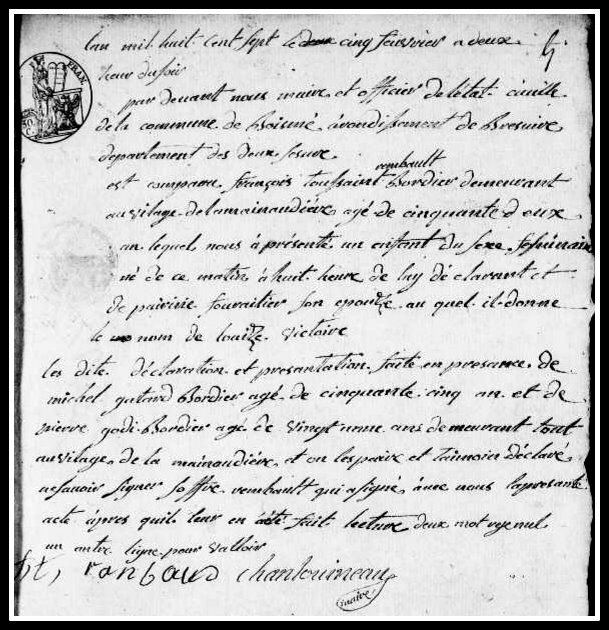 lan mil huit cent sept le deux cinq feuvrier a deux
heur du soir
par devant nous maire et officier de létat civille
de la commune de Boismé, àrondissement de Bresuire
departement des deux sesvre
rembault
est comparu françois toussaint Bordier demeurant
au vilage de la mainaudiére agé de cinquante d eux
an lequel nous à présenté un enfant du sexe
né de ce matin à huit heure de luy dé clarant et
de son epouize au quel il donne
le nom de louize victoire
les dite déclaration et presantation faite en presance de
michel gatard Bordier agé de cinquante cinq an et de
pierre godi Bordier agé de vingt neuf ans demeurant tout
au vilage de la mainaudiére et on les paire et taimoin déclaré
ne savoir signer soffre rembault qui a signé avec nous la presante
acte àpres quil leur en àété fait lecture deux mot reye nul
un antre ligne pour valloir
ft, ranbaud chantouineau
maire
FRAN